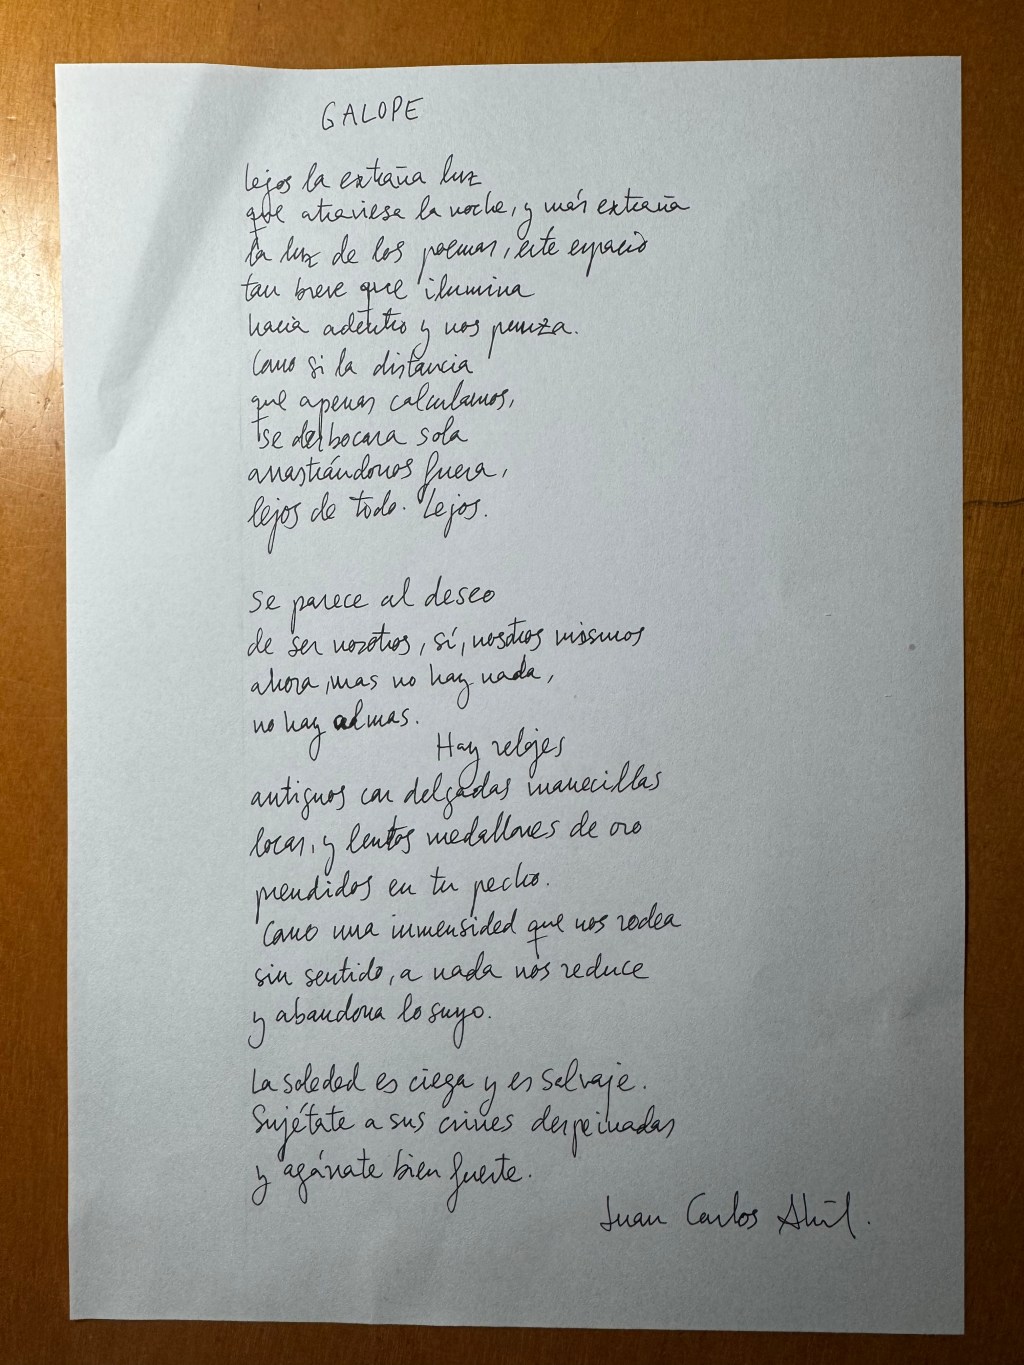 GALOPE
Lejos la extraña luz
que atraviesa la noche, y más extraña
la luz de los poemas, este espacio
tan breve que ilumina
hacia adentro y nos punza.
Como si la distancia
que apenas calculamos,
se desbocara sola
arrastrándonos fuera,
lejos de todo. Lejos.
Se parece al deseo
de ser nosotros, sí, nosotros mismos
ahora, mas no hay nada,
no hay almas.
Hay relojes
antiguos con delgadas manecillas
locas, y lentos medallones de oro
prendidos en tu pecho.
Como una inmensidad que nos rodea
sin sentido, a nada nos reduce
y abandona lo suyo.
La soledad es ciega y es salvaje.
Sujétate a sus crines despeinadas
y agárrate bien fuerte.
Juan Carlos Abril.